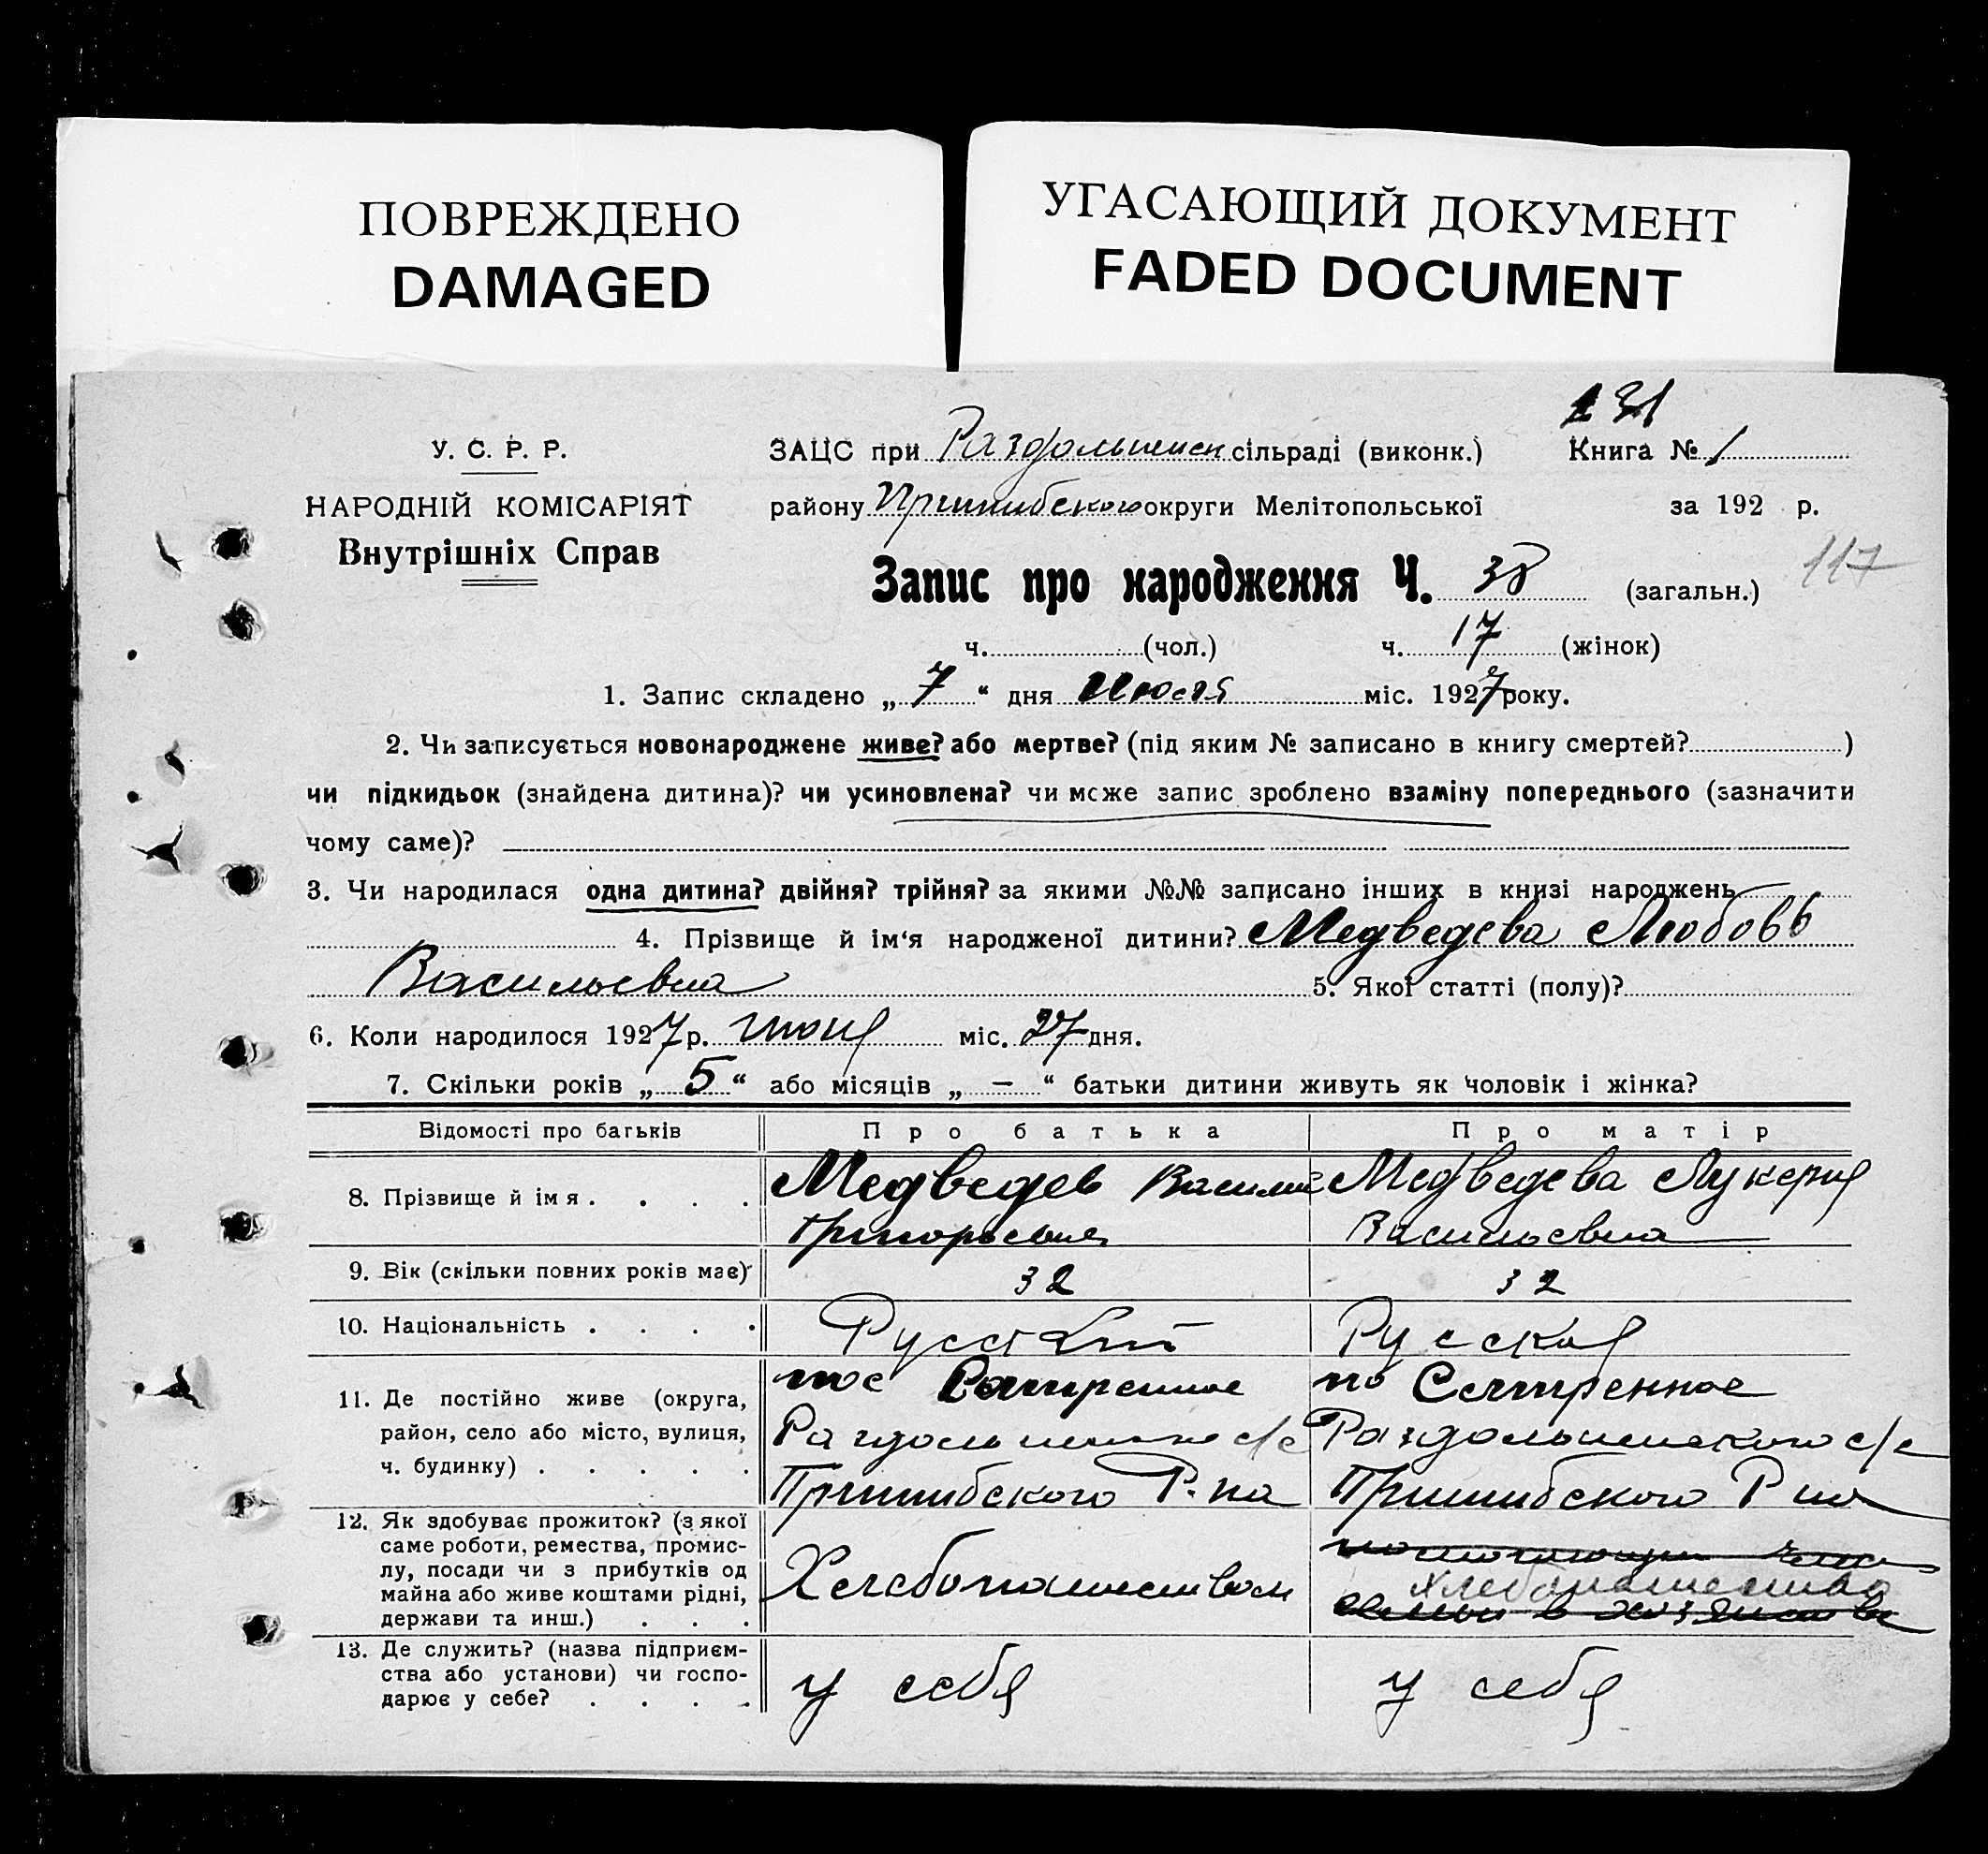 ПОВРЕЖДЕНО
DAMAGED
УГАСАЮЩИЙ ДОКУМЕНТ
FADED DOCUMENT
231
У. С. Р. Р.
НАРОДНІЙ КОМІСАРІЯТ
Внутрішніх Справ
ЗАЦС при Раздольненск сільраді (виконк.) Книга № 1
району Пришибского округи Мелітопольської за 192 р.
117
Запис про народження Ч. 38 (загальн.)
ч. (чол.) ч. 17 (жінок)
1. Запис складено „ 7 “ дня Июля міс. 1927 року.
2. Чи записується новонароджене живе? або мертве? (під яким № записано в книгу смертей? )
чи підкидьок (знайдена дитина)? чи усиновлена? чи може запис зроблено взаміну попереднього (зазначити
чому саме)?
3. Чи народилася одна дитина? двійня? трійня? за якими №№ записано інших в книзі народжень
4. Прізвище й ім‘я народженої дитини? Медведева Любовь
Васильевна 5. Якої статті (полу)?
6. Коли народилося 1927 р. июня міс. 27 дня.
7. Скільки років „ 5 “ або місяців „ — “ батьки дитини живуть як чоловік і жінка?
Відомості про батьків Про батька Про матір
8. Прізвище й імя . . . . Медведев Василий Медведева Лукерия
Григорьевич Васильевна
9. Вік (скільки повних років має) 32 32
10. Національність . . . . Русский Русская
11. Де постійно живе (округа, район, село або місто, вулиця, ч. будинку) . . . . .
пос Сампренное
Раздольненского с/с
Пришибского Р-на
по Сампренное
Раздольненского с/с
Пришибского Р на
12. Як здобуває прожиток? (з якої
саме роботи, ремества, промис-
лу, посади чи з прибутків од
майна або живе коштами рідні,
держави та инш.) . . .
Хлебопашеством
Хлебопашество
13. Де служить? (назва підприєм-
ства або установи) чи госпо-
дарює у себе? . . . .
у себя у себя